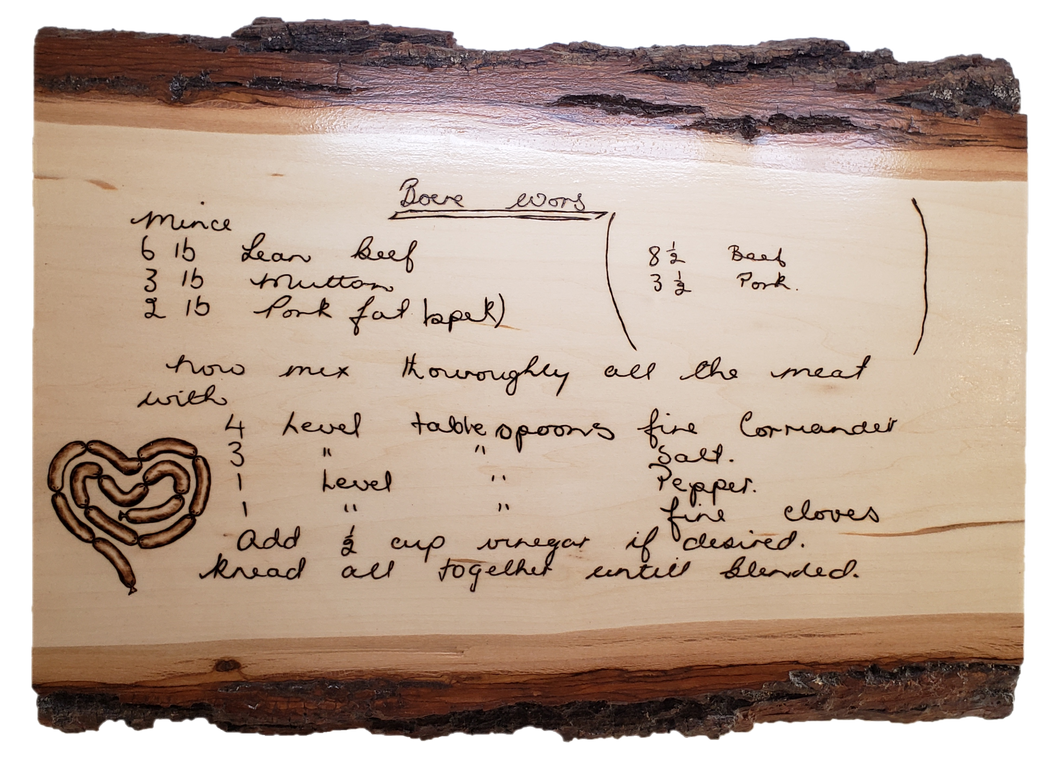 Boere Wors
Mince
6 lb Lean beef
3 lb Mutton
2 lb Pork fat (spek)
(8 ½ Beef
3 ½ Pork.)
now mix thoroughly all the meat
with
4 Level tablespoons fine Corriander
3 " " Salt.
1 Level " Pepper.
1 " " fine cloves
Add ½ cup vinegar if desired.
knead all together untill blended.